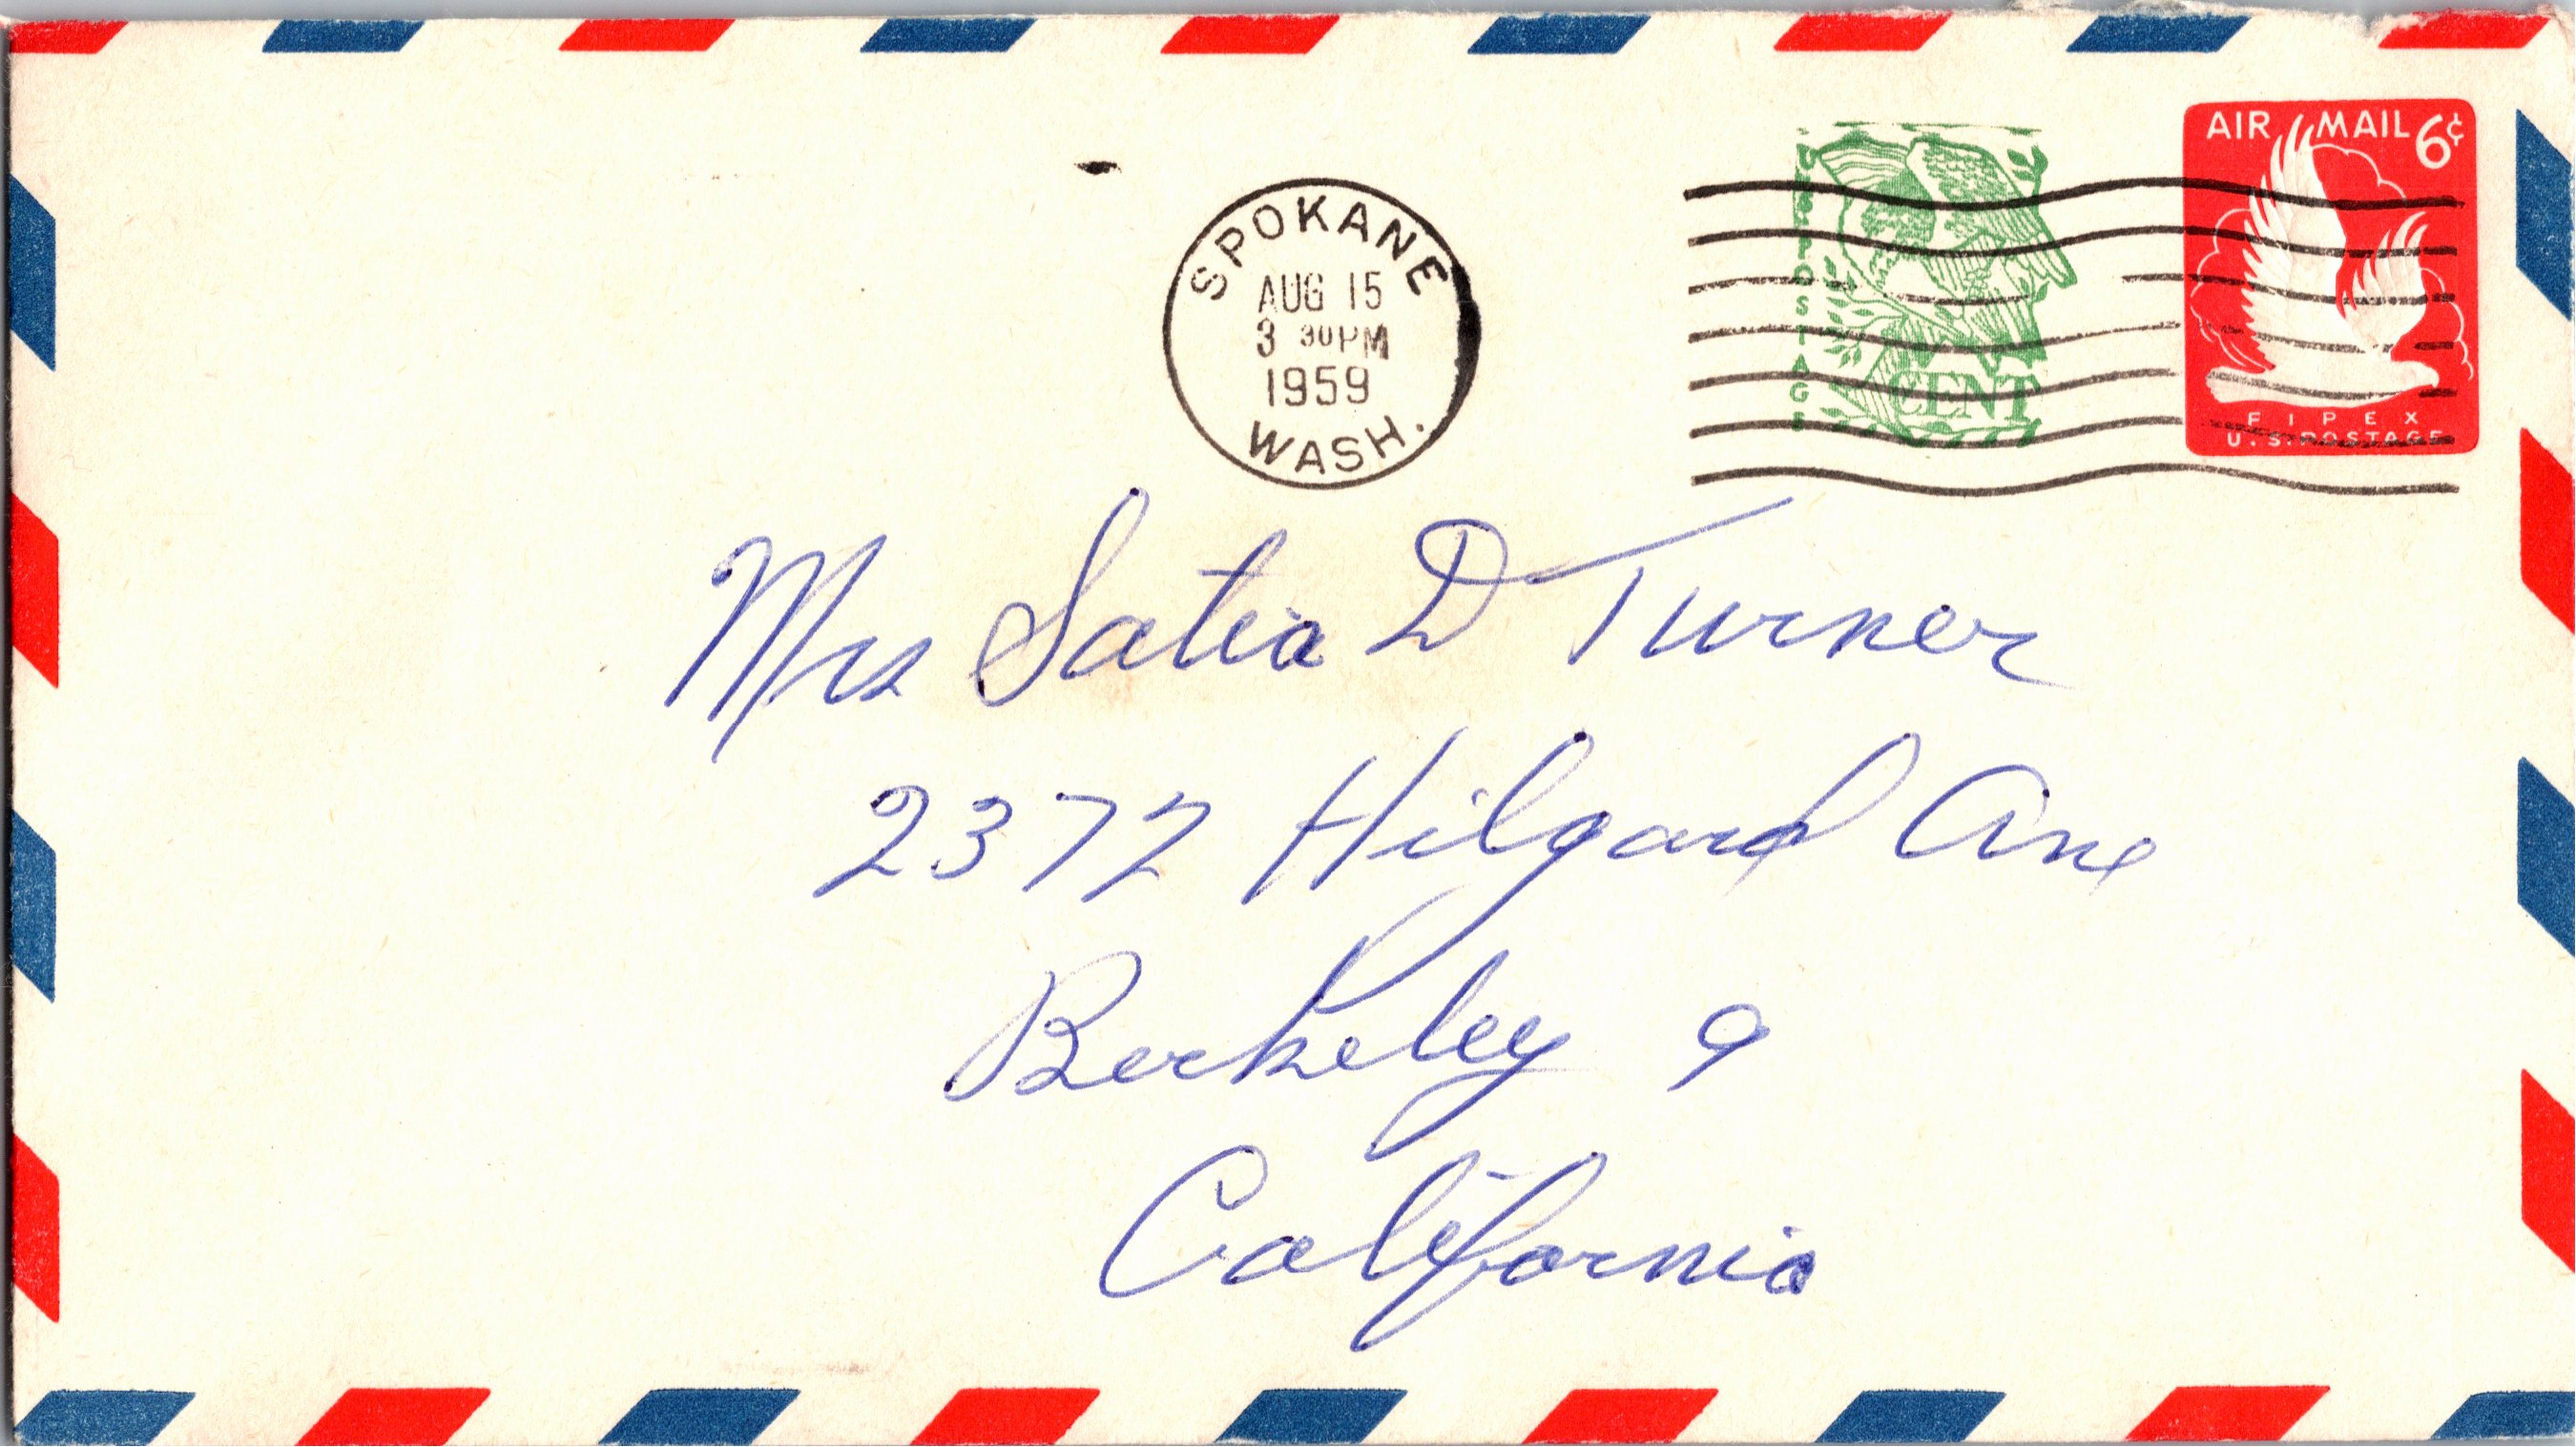 SPOKANE
AUG 15
3 30PM
1959
WASH.
U.S. POSTAGE
CENT
AIR MAIL 6¢
FIPEX
U.S. POSTAGE
Mrs Satia D Turner
2372 Hilgard Ave
Berkeley 9
California